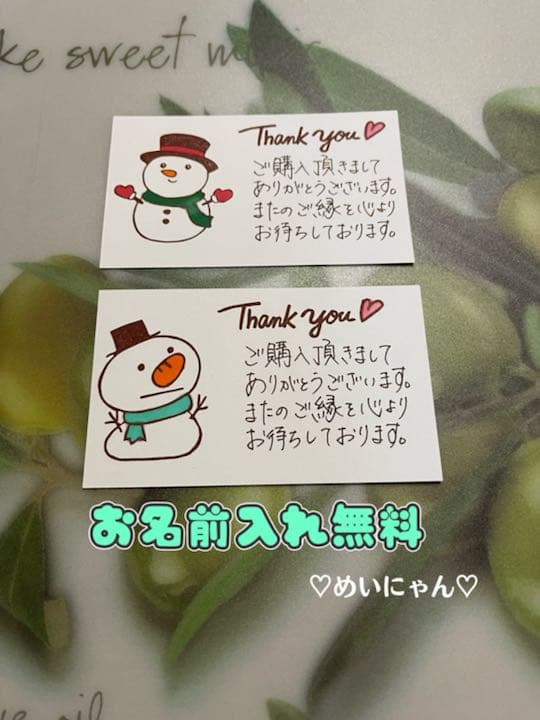 ke sweet
Thank you♡
ご購入頂きまして
ありがとうございます。
またのご縁を心より
お待ちしております。
Thank you♡
ご購入頂きまして
ありがとうございます。
またのご縁を心より
お待ちしております。
お名前入れ無料
♡めいにゃん♡